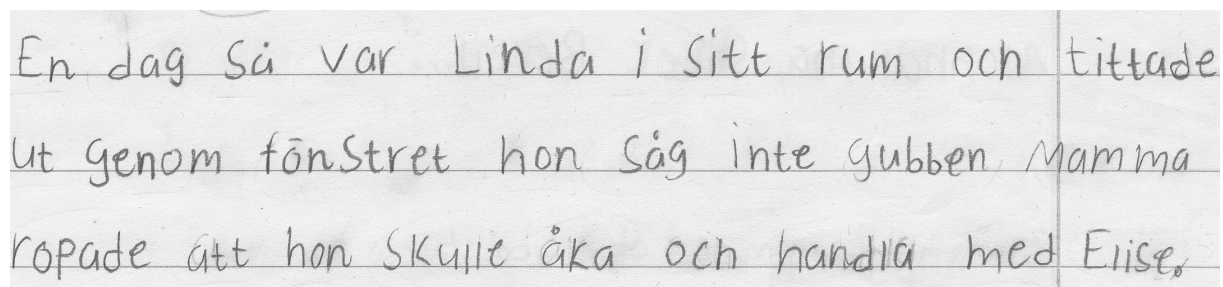 En dag så var Linda i sitt rum och tittade
ut genom fönstret hon såg inte gubben Mamma
ropade att hon skulle åka och handla med Elise.